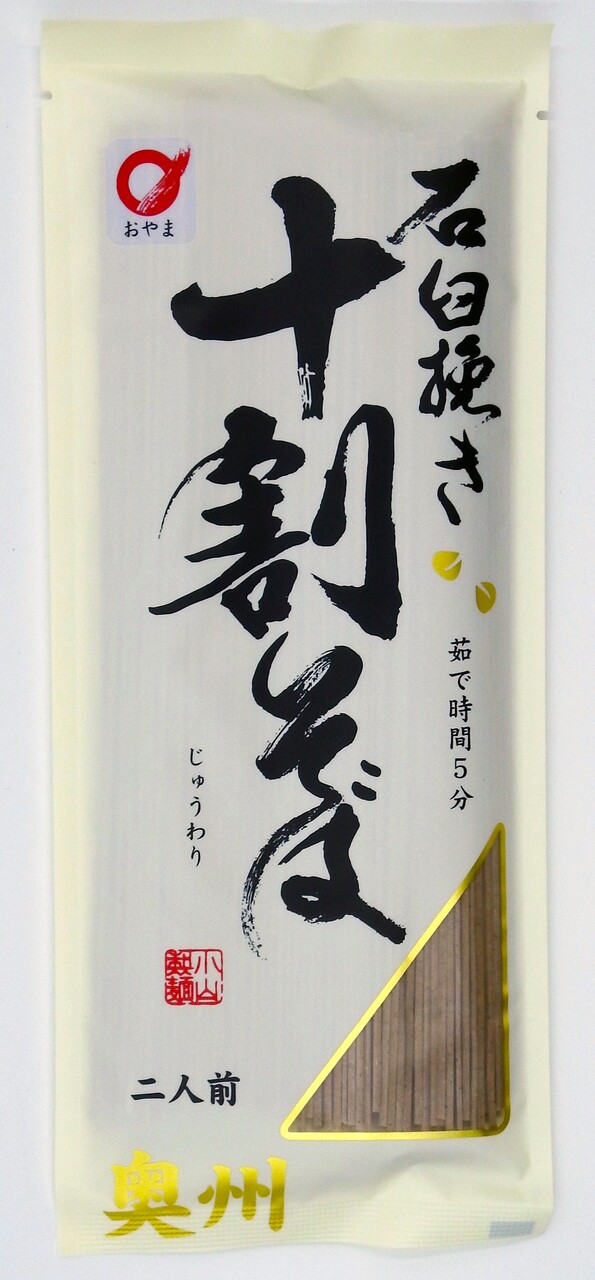 石臼挽き
十割そば
じゅうわり
茹で時間5分
おやま
小山
製麺
二人前
奥州